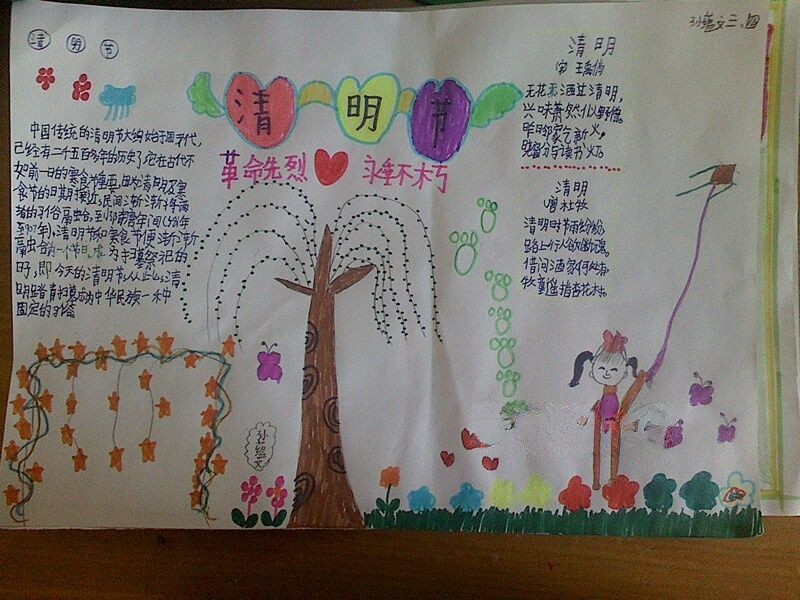 清 明 节
清明节
革命先烈 永垂不朽
中国传统的清明节大约始于周代,
已经有二千五百多年的历史,它在古代不
如前一日的寒食节重要,因为清明及寒
食节的日期接近,民间渐渐
的习俗
清明节和寒食节便渐渐
一个节日, 为扫墓祭祀的
日子,即今天的清明节,从此,清
明踏青扫墓成为中华民族一种
固定的习俗
清明
宋 王禹偁
无花无酒过清明,
兴味萧然似野僧。
昨日邻家乞新火,
晓窗分与读书灯。
清明
唐 杜牧
清明时节雨纷纷
路上行人欲断魂。
借问酒家何处有
牧童遥指杏花村。